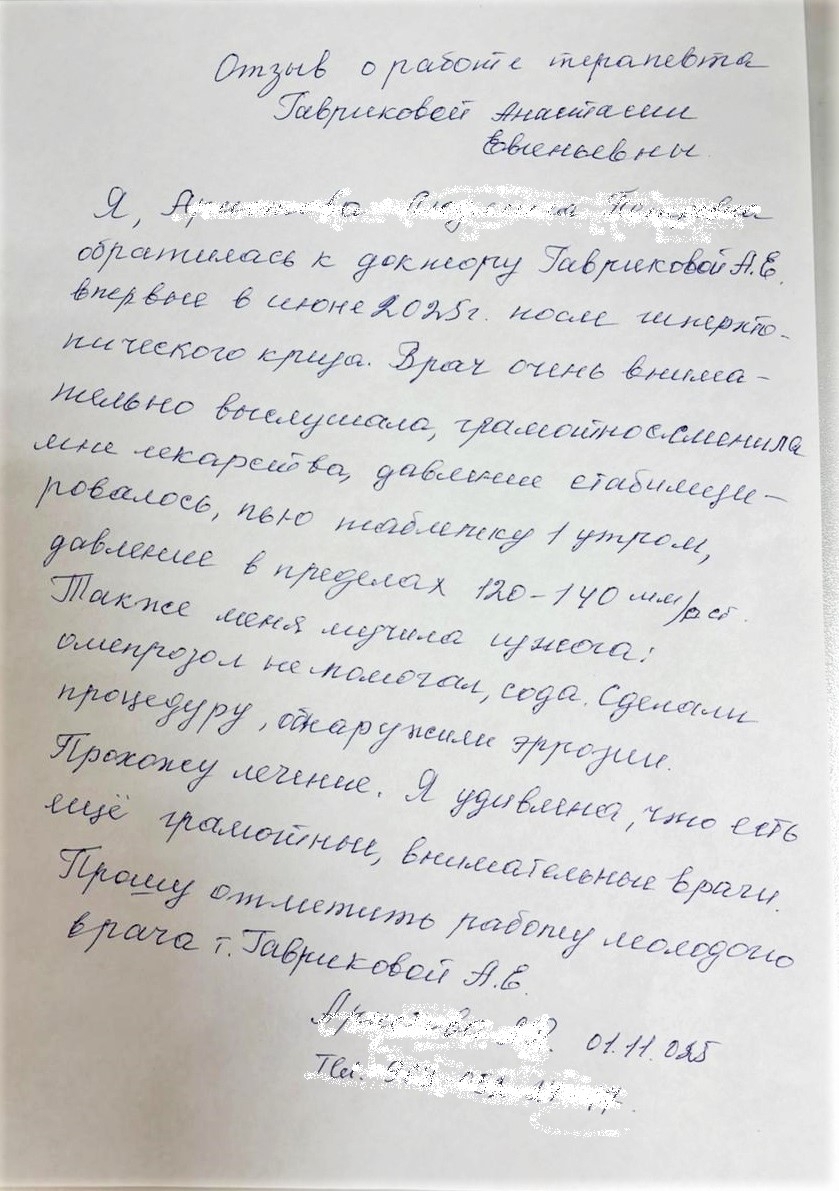 Отзыв о работе терапевта
Гавриковой Анастасии
Евгеньевны
Я,
обратилась к доктору Гавриковой А.Е.
впервые в июне 2025г. после гиперто-
нического криза. Врач очень внима-
тельно выслушала, грамотно сменила
мне лекарства, давление стабилизи-
ровалось, пью таблетку 1 утром,
давление в пределах 120-140 мм/рт ст.
Также меня мучила изжога:
омепрозол не помогал, сода. Сделали
процедуру, обнаружили эррозии.
Прохожу лечение. Я удивлена, что есть
ещё грамотные, внимательные врачи.
Прошу отметить работу молодого
врача т. Гавриковой А.Е.
01.11.025
Тел.